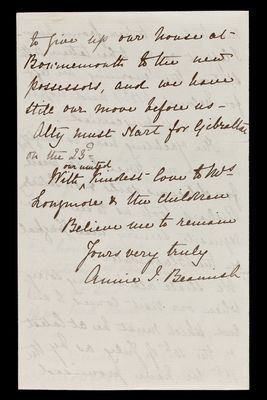 to give up our house at
Bournemouth to the new
possessors, and we have
still our move before us -
Alty must start for Gibraltar
on the 23d
With our united kindest love to Mrs
Longmore & the children
Believe me to remain
Yours very truly
Annie J. Beamish